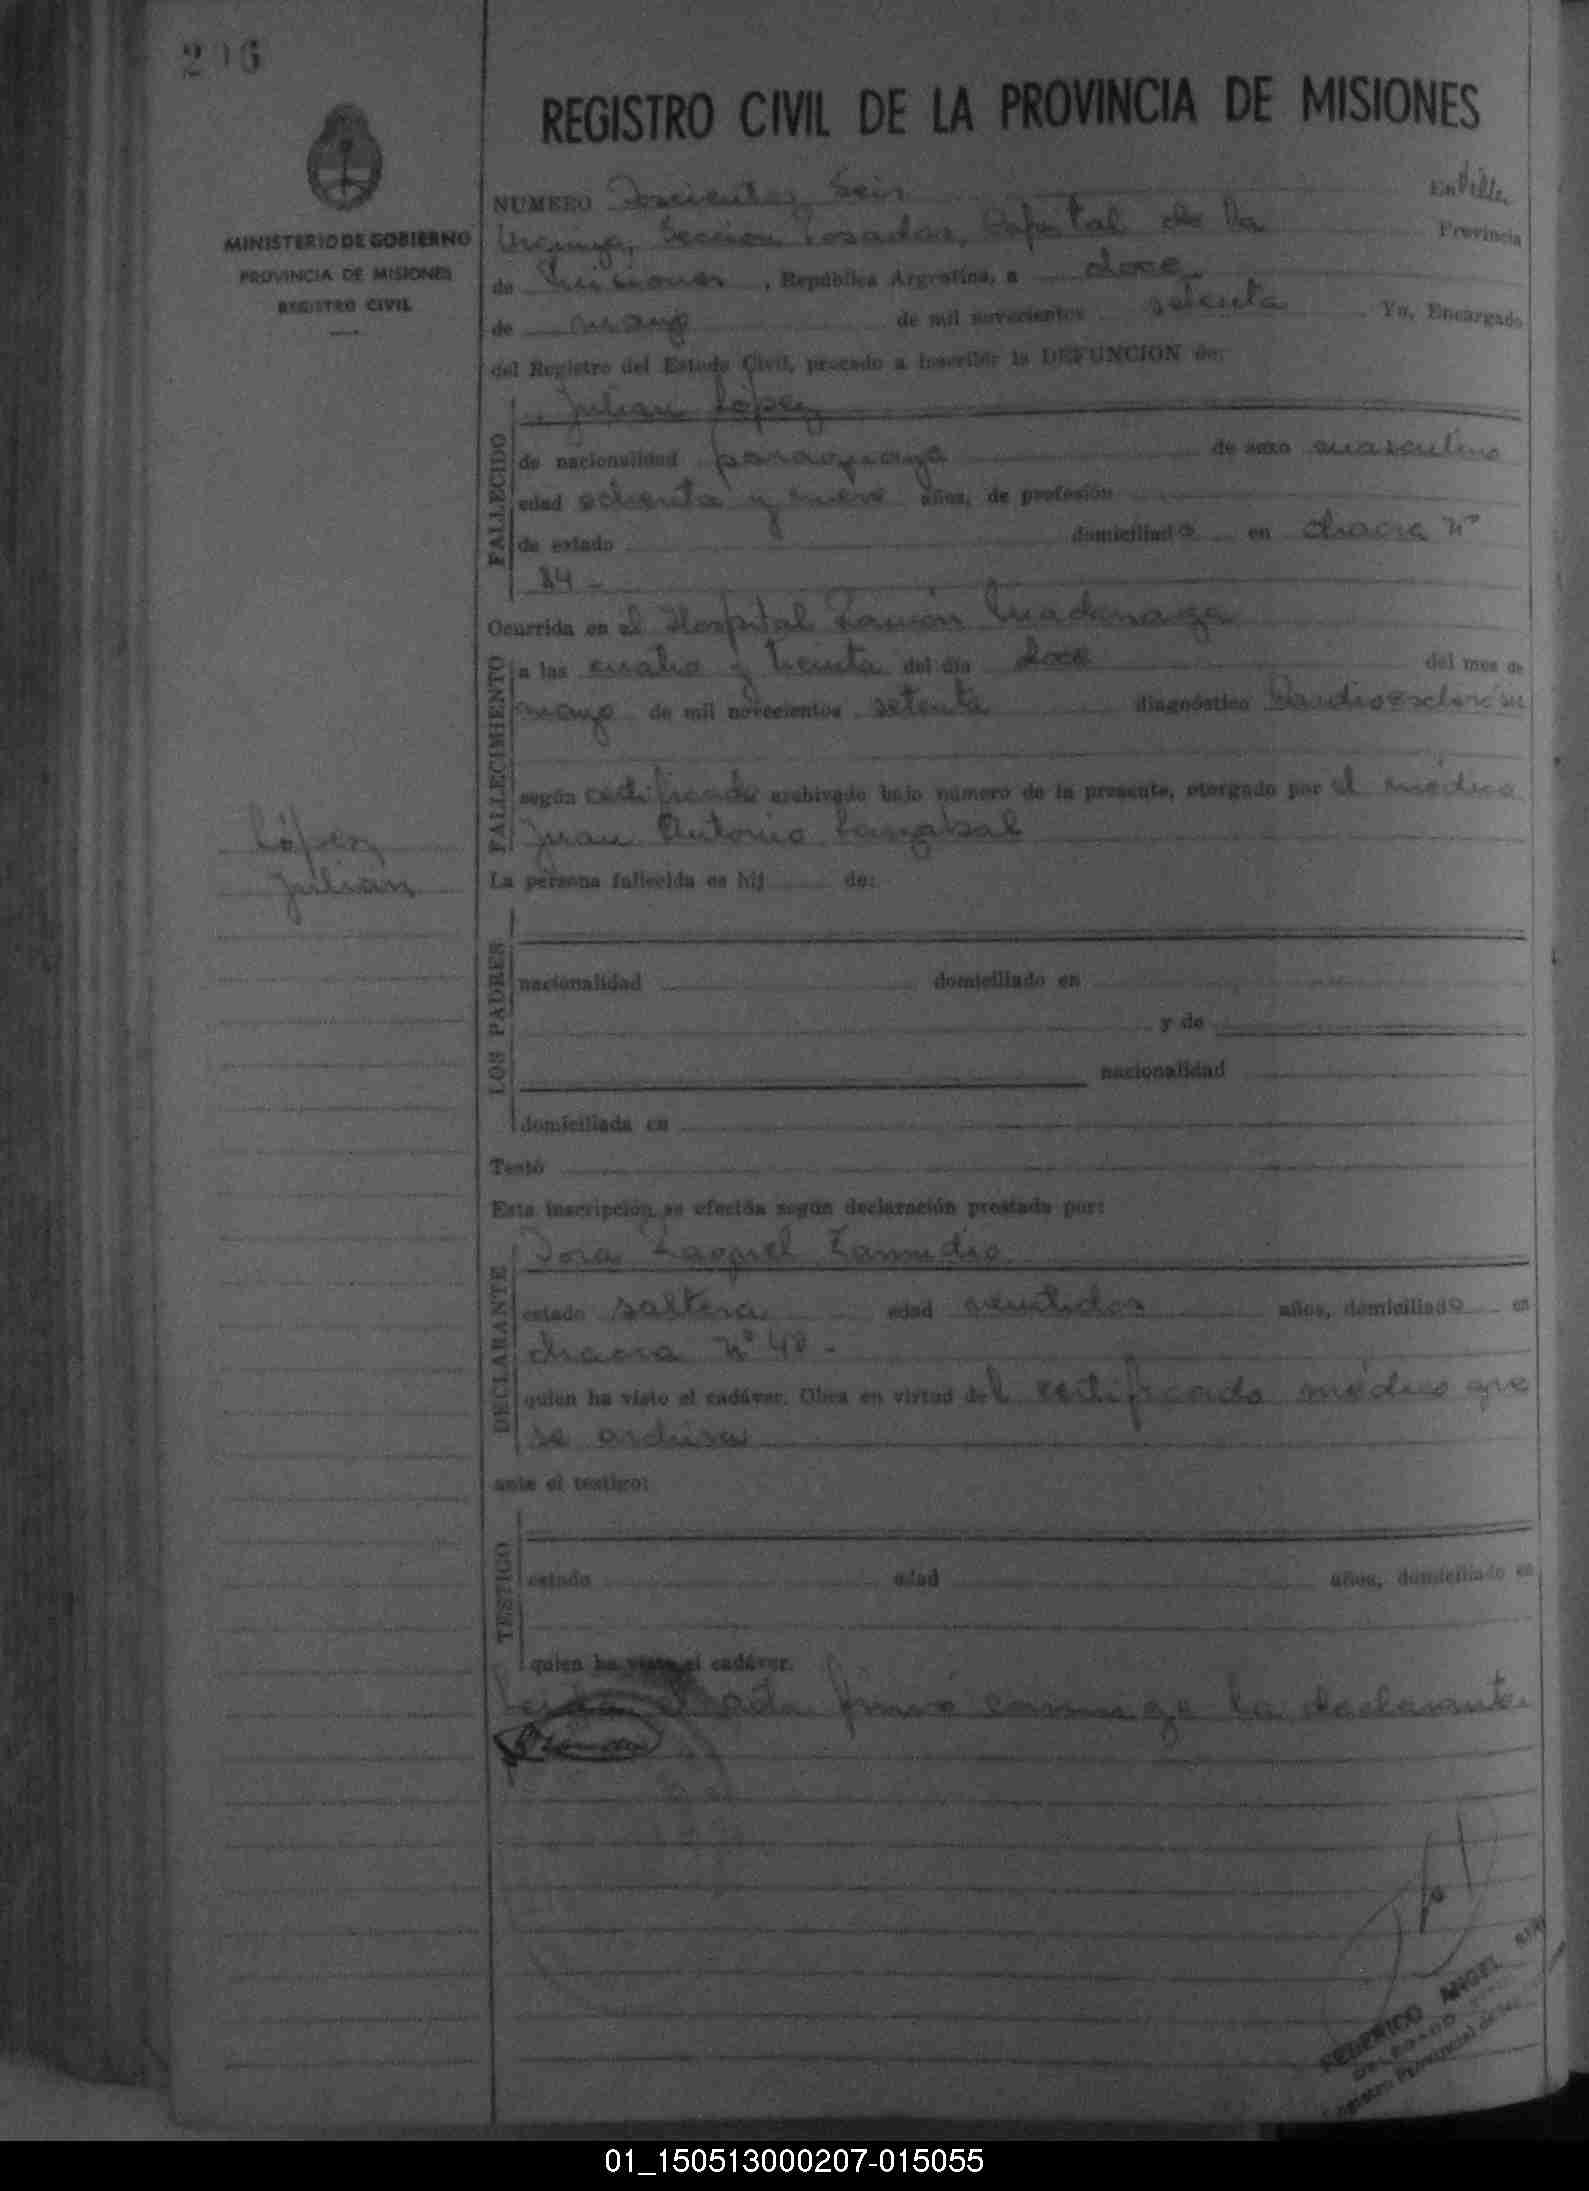 206
REGISTRO CIVIL DE LA PROVINCIA DE MISIONES
MINISTERIO DE GOBIERNO
PROVINCIA DE MISIONES
REGISTRO CIVIL
NUMERO Doscientos Seis En Villa
Urquiza, Sección Posadas, Capital de la Provincia
de Misiones, República Argentina, a doce
de mayo de mil novecientos setenta Yo, Encargado
del Registro del Estado Civil, procedo a inscribir la DEFUNCION de:
Julian López
FALLECIDO
de nacionalidad paraguaya de sexo masculino
edad ochenta y nueve años, de profesión
de estado domiciliado en chacra Nº
84 -
Ocurrida en el Hospital Ramón Madariaga
FALLECIMIENTO
a las cuatro y treinta del día doce del mes de
mayo de mil novecientos setenta diagnóstico
según certificado archivado bajo número de la presente, otorgado por el médico
Juan Antonio
López
Julián
La persona fallecida es hij de:
LOS PADRES
nacionalidad domiciliado en
y de
nacionalidad
domiciliada en
Testó
Esta inscripción se efectúa según declaración prestada por:
DECLARANTE
Dora Raquel Zamudio
estado soltera edad veintidos años, domiciliado en
chacra Nº 48 -
quien ha visto el cadáver. Obra en virtud del certificado médico que
se archiva
ante el testigo:
TESTIGO
estado edad años, domiciliado en
quien ha visto el cadáver.
Leida el acta firmó conmigo la declarante
FEDERICO ANGEL
DELEGADO
Registro Provincial de las
01_150513000207-015055